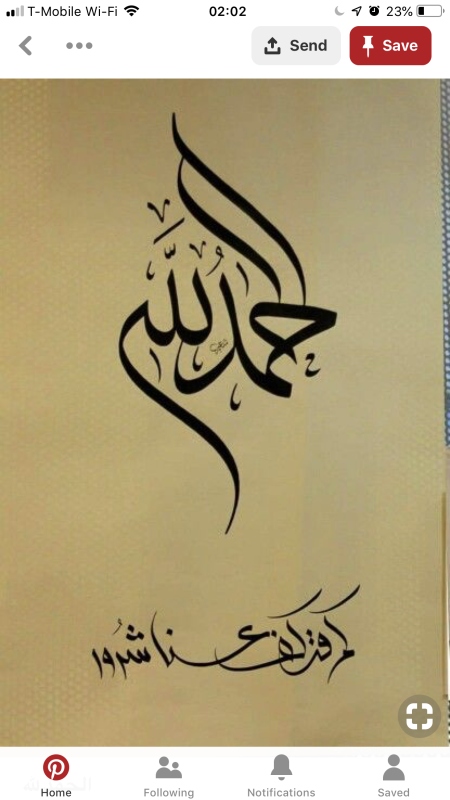 T-Mobile Wi-Fi 02:02 23%
Send Save
الحمد لله
كم قد كف عنا شرور
Home Following Notifications Saved